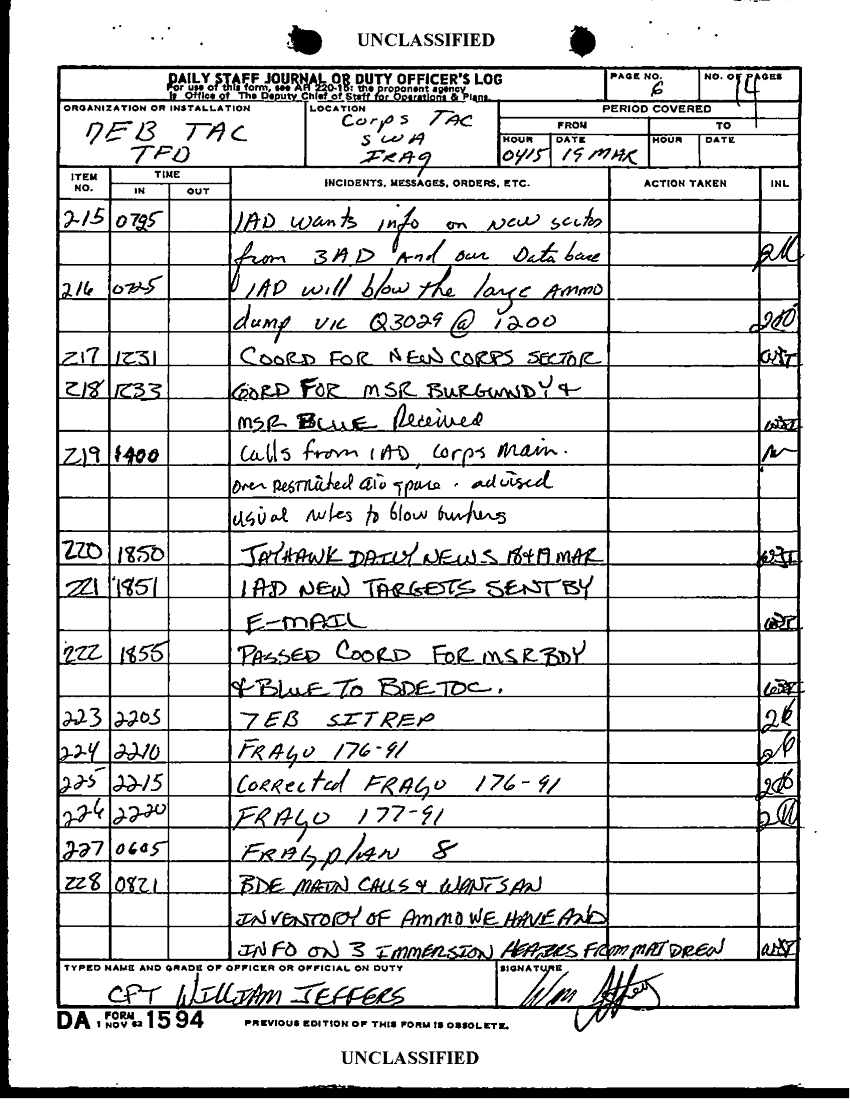 UNCLASSIFIED
DAILY STAFF JOURNAL OR DUTY OFFICER'S LOG
For use of this form, see AR 220-15; the proponent agency
is Office of The Deputy Chief of Staff for Operations & Plans.
PAGE NO.
6
NO. OF PAGES
14
ORGANIZATION OR INSTALLATION
7EB TAC
TFD
LOCATION
Corps TAC
SWA
IRAQ
PERIOD COVERED
FROM
TO
HOUR
0415
DATE
19 MAR
HOUR
DATE
ITEM NO.
TIME
IN
OUT
INCIDENTS, MESSAGES, ORDERS, ETC.
ACTION TAKEN
INL
215 0725 1AD wants info on new sector
from 3AD and our Data base
216 0725 1AD will blow the large Ammo
dump vic Q3029 @ 1200
217 1231 COORD FOR NEW CORPS SECTOR
218 1233 COORD FOR MSR BURGUNDY &
MSR BLUE Received
219 1400 Calls from 1AD, Corps Main.
over restricted air space. advised
usual rules to blow bunkers
220 1850 JAYHAWK DAILY NEWS 18&19 MAR
221 1851 1AD NEW TARGETS SENT BY
E-MAIL
222 1855 PASSED COORD FOR MSR BDY
& BLUE TO BDE TOC.
223 2205 7EB SITREP
224 2210 FRAGO 176-91
225 2215 Corrected FRAGO 176-91
226 2220 FRAGO 177-91
227 0605 FRAGPLAN 8
228 0821 BDE MAIN CALLS & WANTS AN
INVENTORY OF AMMO WE HAVE AND
INFO ON 3 IMMERSION HEATERS FROM MAT DREN
TYPED NAME AND GRADE OF OFFICER OR OFFICIAL ON DUTY
CPT WILLIAM JEFFERS
SIGNATURE
Wm Jeffers
DA FORM 1 NOV 62 1594
PREVIOUS EDITION OF THIS FORM IS OBSOLETE.
UNCLASSIFIED